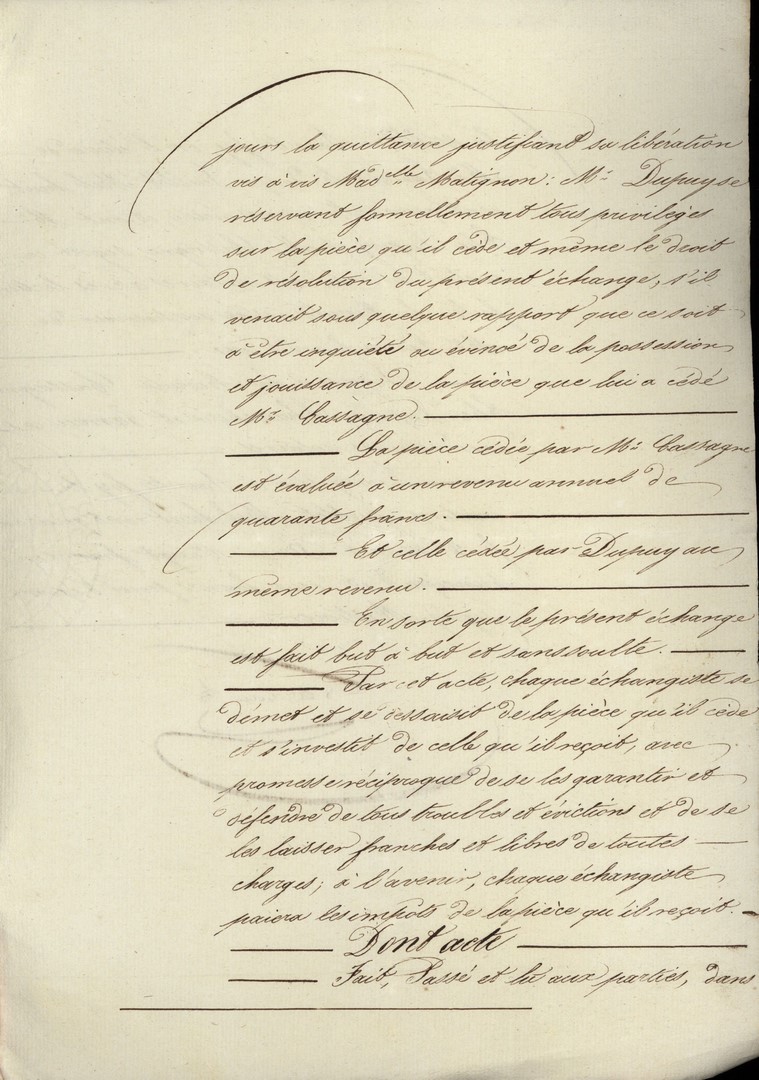 jours la quittance justifiant sa libération
vis à vis Mad.elle Matignon: Mr. Dupuy se
réservant formellement tous privilèges
sur la pièce qu'il cède et même le droit
de résolution du présent échange, s'il
venait sous quelque rapport que ce soit
à être inquiété ou évincé de la possession
et jouissance de la pièce que lui a cédé
Mr. Cassagne.
La pièce cédée par Mr. Cassagne
est évaluée à un revenu annuel de
quarante francs.
Et celle cédée par Dupuy au
même revenu.
En sorte que le présent échange
est fait but à but et sans soulte.
Par cet acte, chaque échangiste se
démet et se dessaisit de la pièce qu'il cède
et s'investit de celle qu'il reçoit, avec
promesse réciproque de se les garantir et
défendre de tous troubles et évictions et de se
les laisser franches et libres de toutes
charges; à l'avenir, chaque échangiste
paiera les impots de la pièce qu'il reçoit.
Dont acte
Fait, Passé et lu aux parties, dans